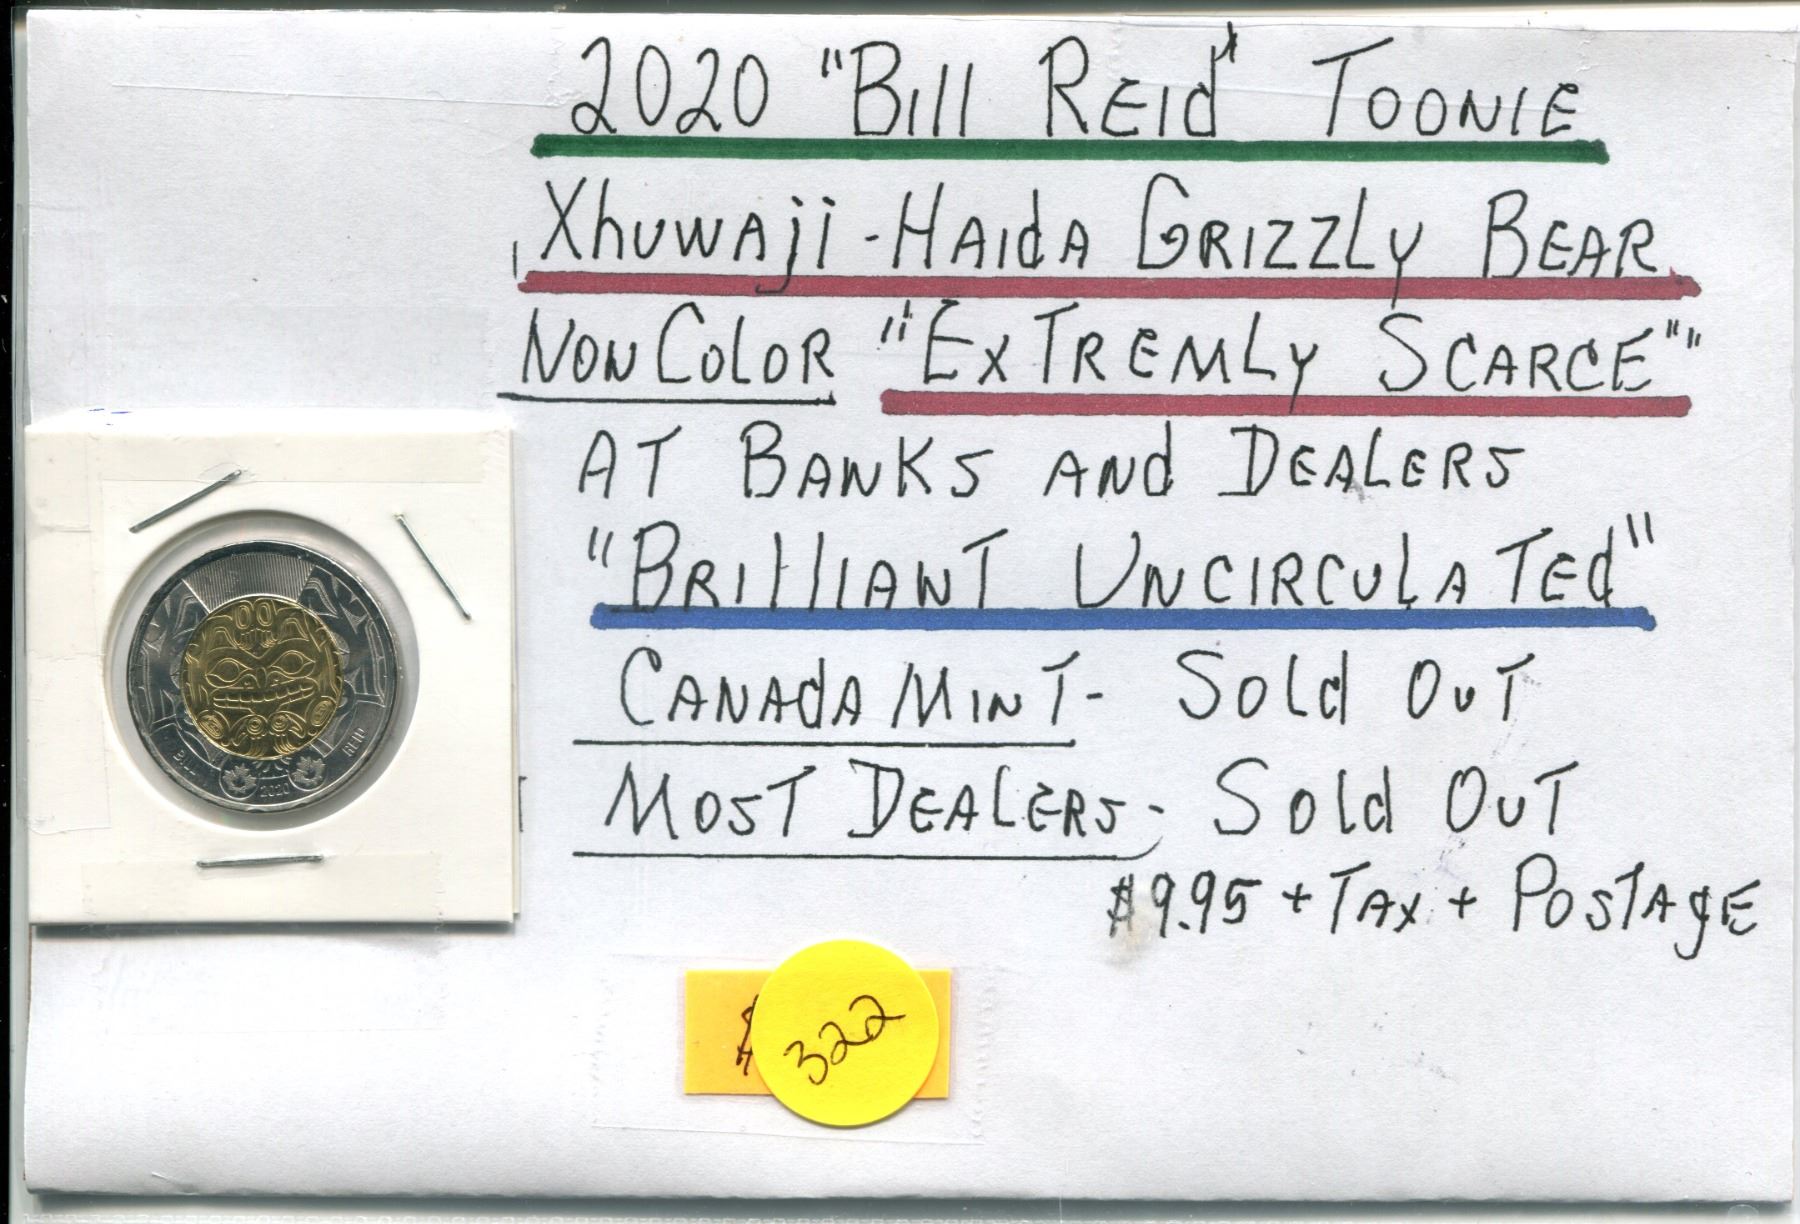 2020 "Bill REId" TOONIE
XhUWAji - HAIdA GRIZZLY BEAR
NON COLOR "EXTREMLY SCARCE""
AT BANKS AND DEALERS
"BRIllIANT UNCIRCULATEd"
CANAdA MINT - Sold OUT
MOST DEALERS - Sold OUT
$9.95 + TAX + POSTAgE
BILL REID
2020
$
322